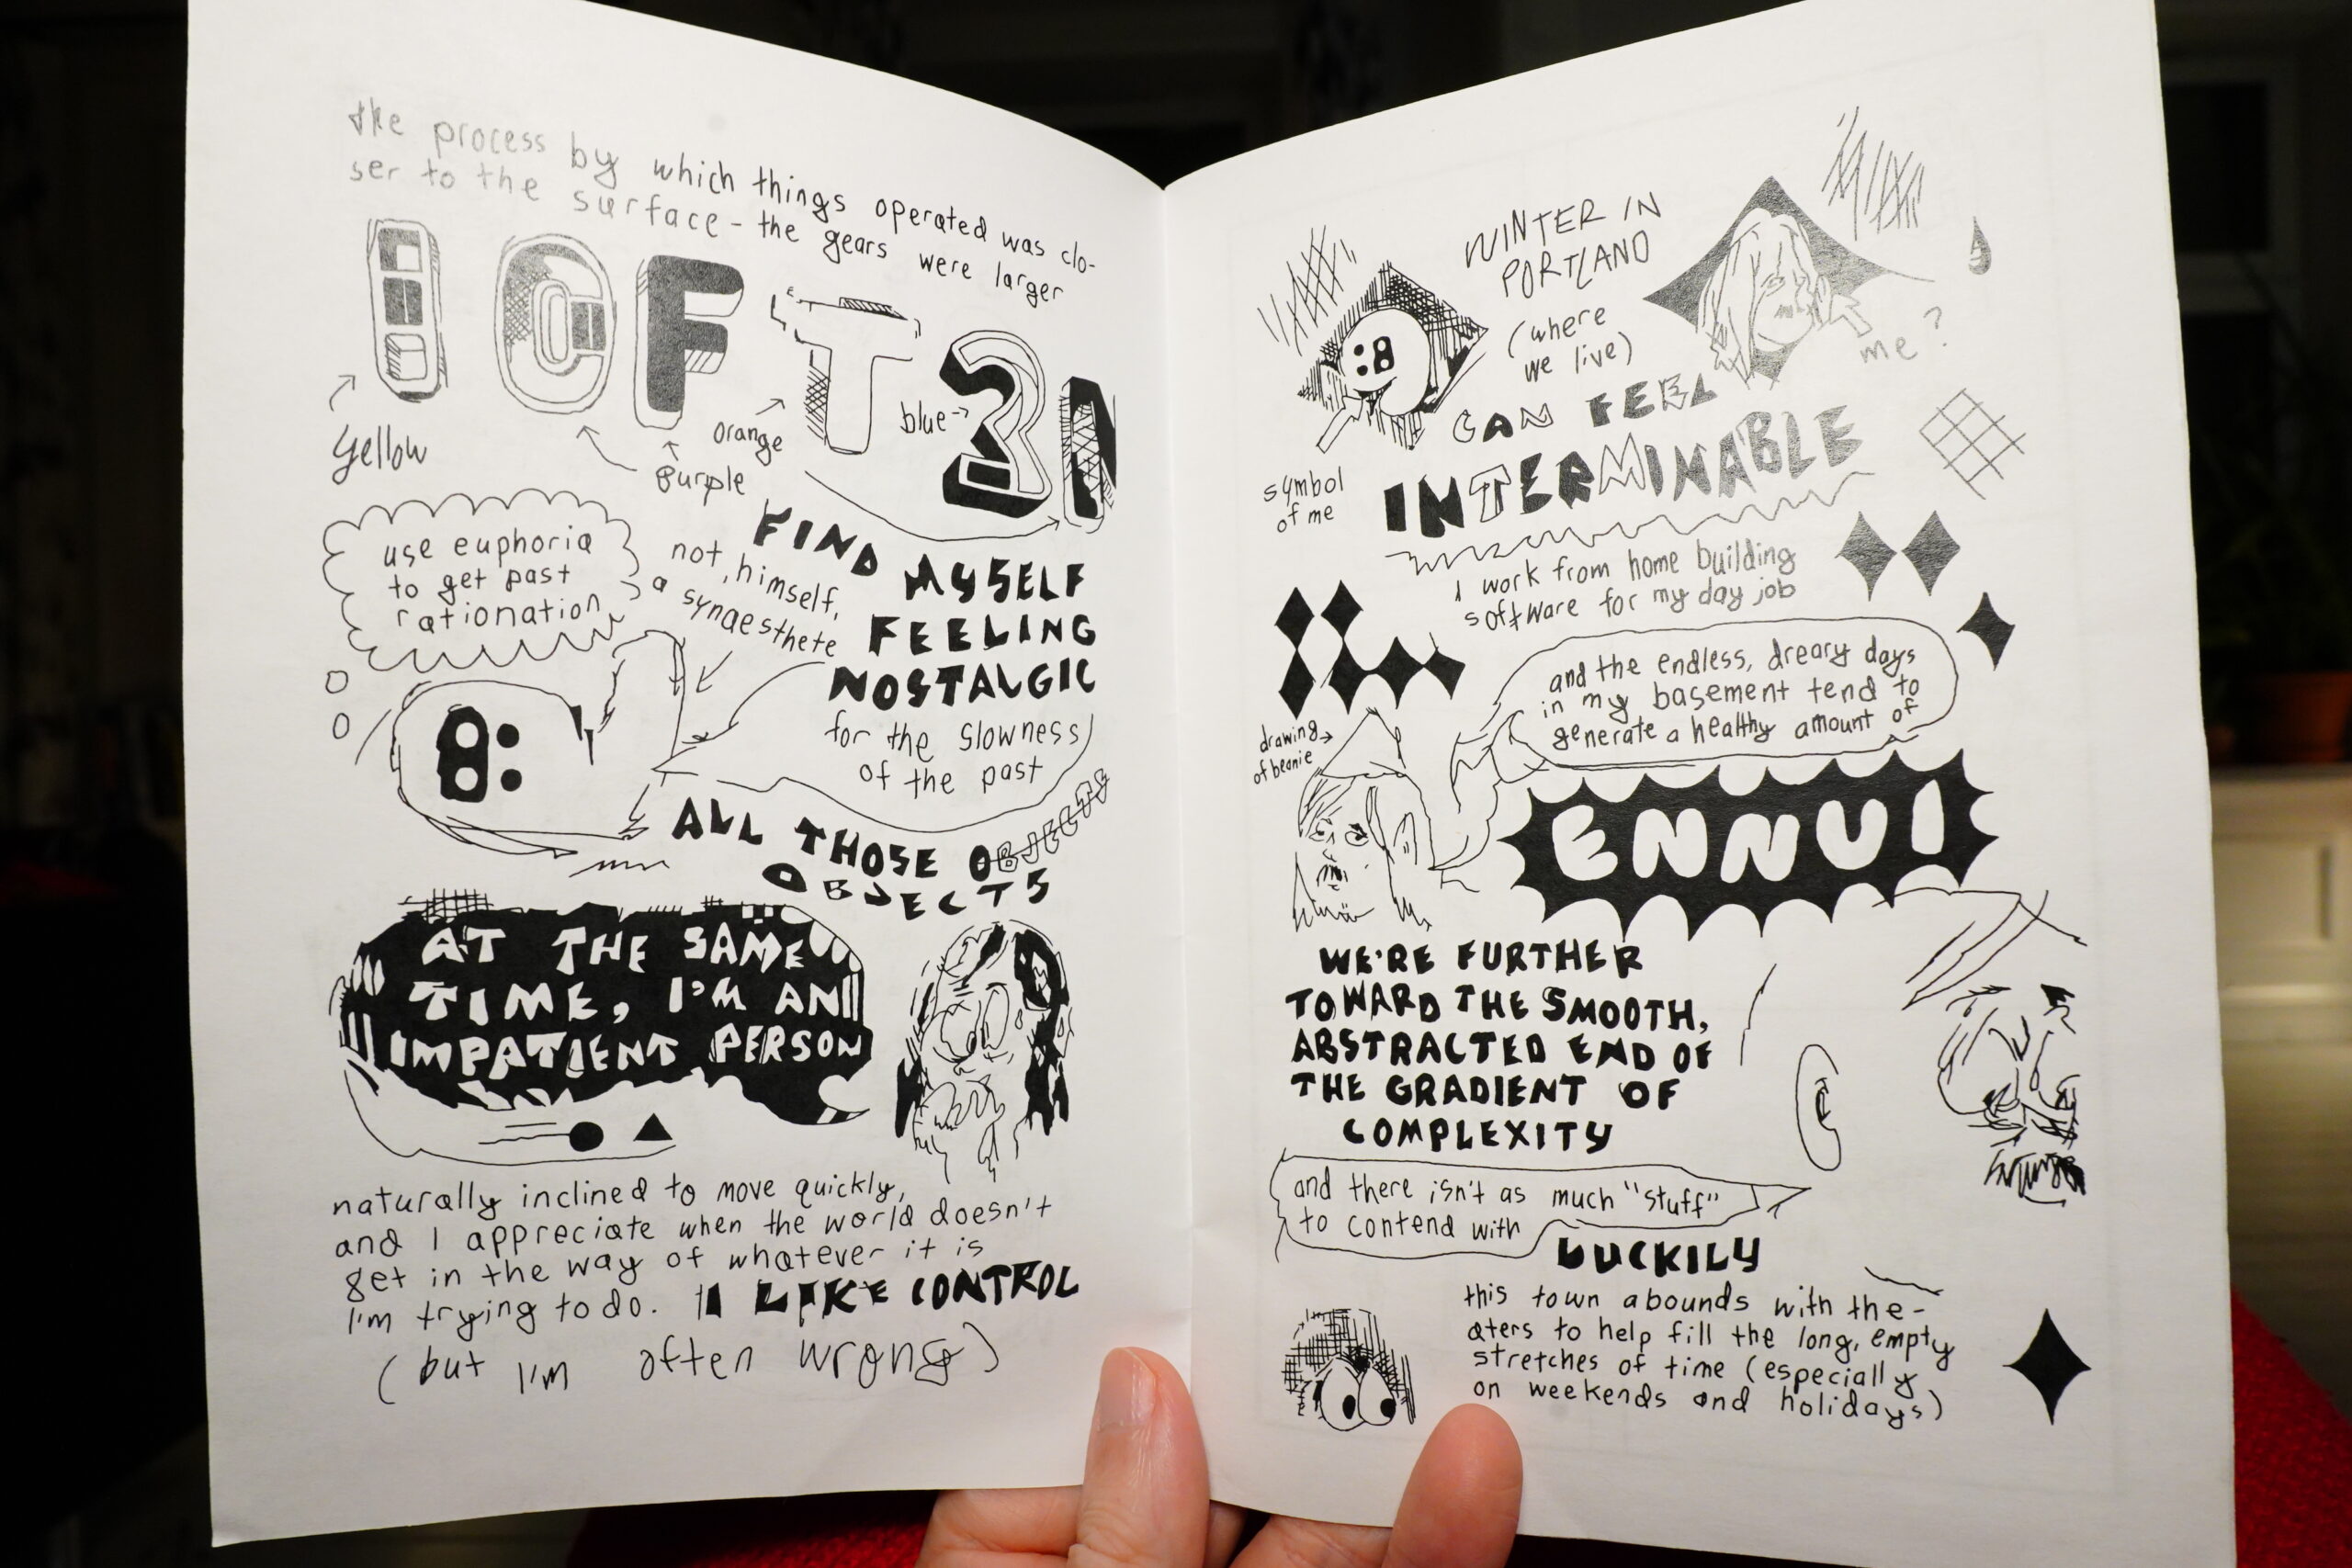 the process by which things operated was clo-
ser to the surface - the gears were larger
I OFT3N
yellow
purple
orange
blue
use euphoria
to get past
rationation
FIND MYSELF
FEELING
NOSTALGIC
not, himself,
a synaesthete
for the slowness
of the past
ALL THOSE OBJECTS
OBJECTS
AT THE SAME
TIME, I'M AN
IMPATIENT PERSON
naturally inclined to move quickly,
and I appreciate when the world doesn't
get in the way of whatever it is
I'm trying to do. I LIKE CONTROL
(but I'm often wrong)
WINTER IN
PORTLAND
(where
we live)
me?
symbol
of me
CAN FEEL
INTERMINABLE
I work from home building
software for my day job
and the endless, dreary days
in my basement tend to
generate a healthy amount of
drawing
of beanie
ENNUI
WE'RE FURTHER
TOWARD THE SMOOTH,
ABSTRACTED END OF
THE GRADIENT OF
COMPLEXITY
and there isn't as much "stuff"
to contend with
LUCKILY
this town abounds with the-
aters to help fill the long, empty
stretches of time (especially
on weekends and holidays)